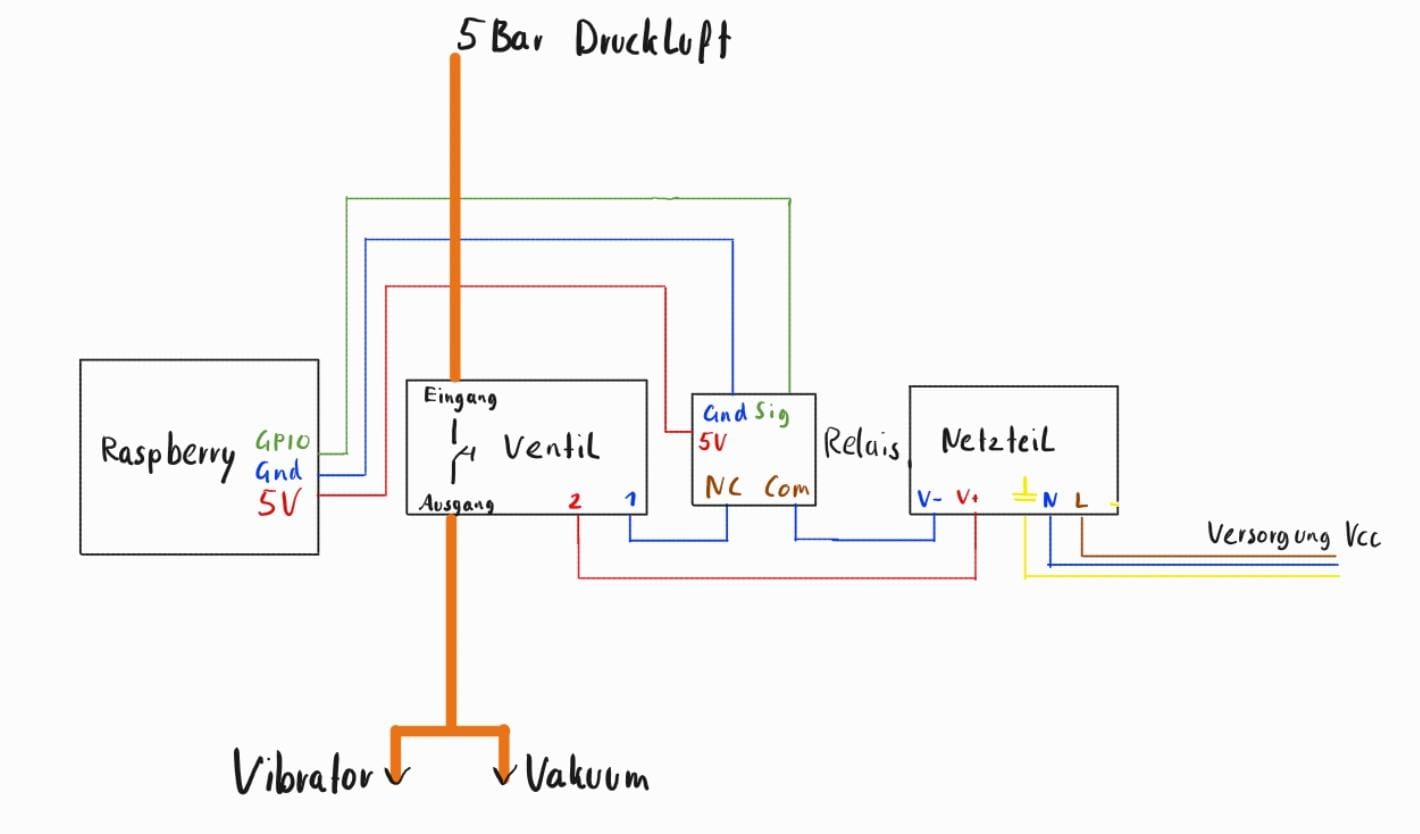 5 Bar Druckluft
Raspberry
GPIO
Gnd
5V
Eingang
Ventil
Ausgang
2
1
Gnd Sig
5V
NC Com
Relais
Netzteil
V- V+ N L
Versorgung Vcc
Vibrator
Vakuum